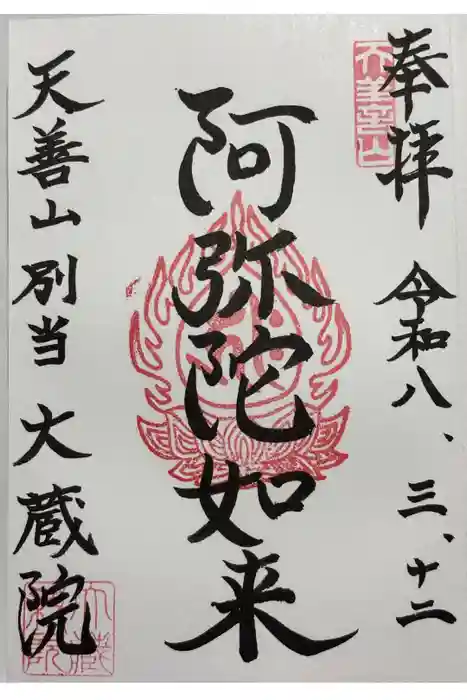 奉拝 令和八、三、十二
阿弥陀如来
天善山別当 大蔵院
天善山